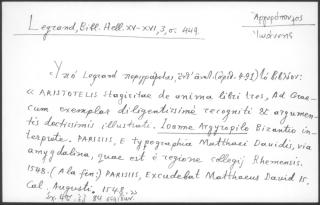 Legrand, Bibl. Hell. XV-XVI, 3, σ. 449.
Ἀργυρόπουλος
Ἰωάννης
Ὑπὸ Legrand περιγράφεται,
« ARISTOTELIS Stagiritae de anima libri tres, Ad Grae-
cum exemplar diligentissime recogniti & argumen-
tis doctissimis illustrati. Ioanne Argyropilo Bizantio in-
terprete. PARISIIS, E typographia Matthaei Davidis, via
amygdalina, quae est è regione collegij Rhemensis.
1548. (A la fin:) PARISIIS, Excudebat Matthaeus David 15.
Cal. Augusti. 1548. »
84